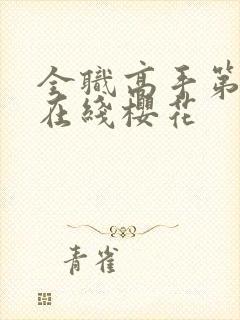 全職高手第
在綫櫻花
青雀